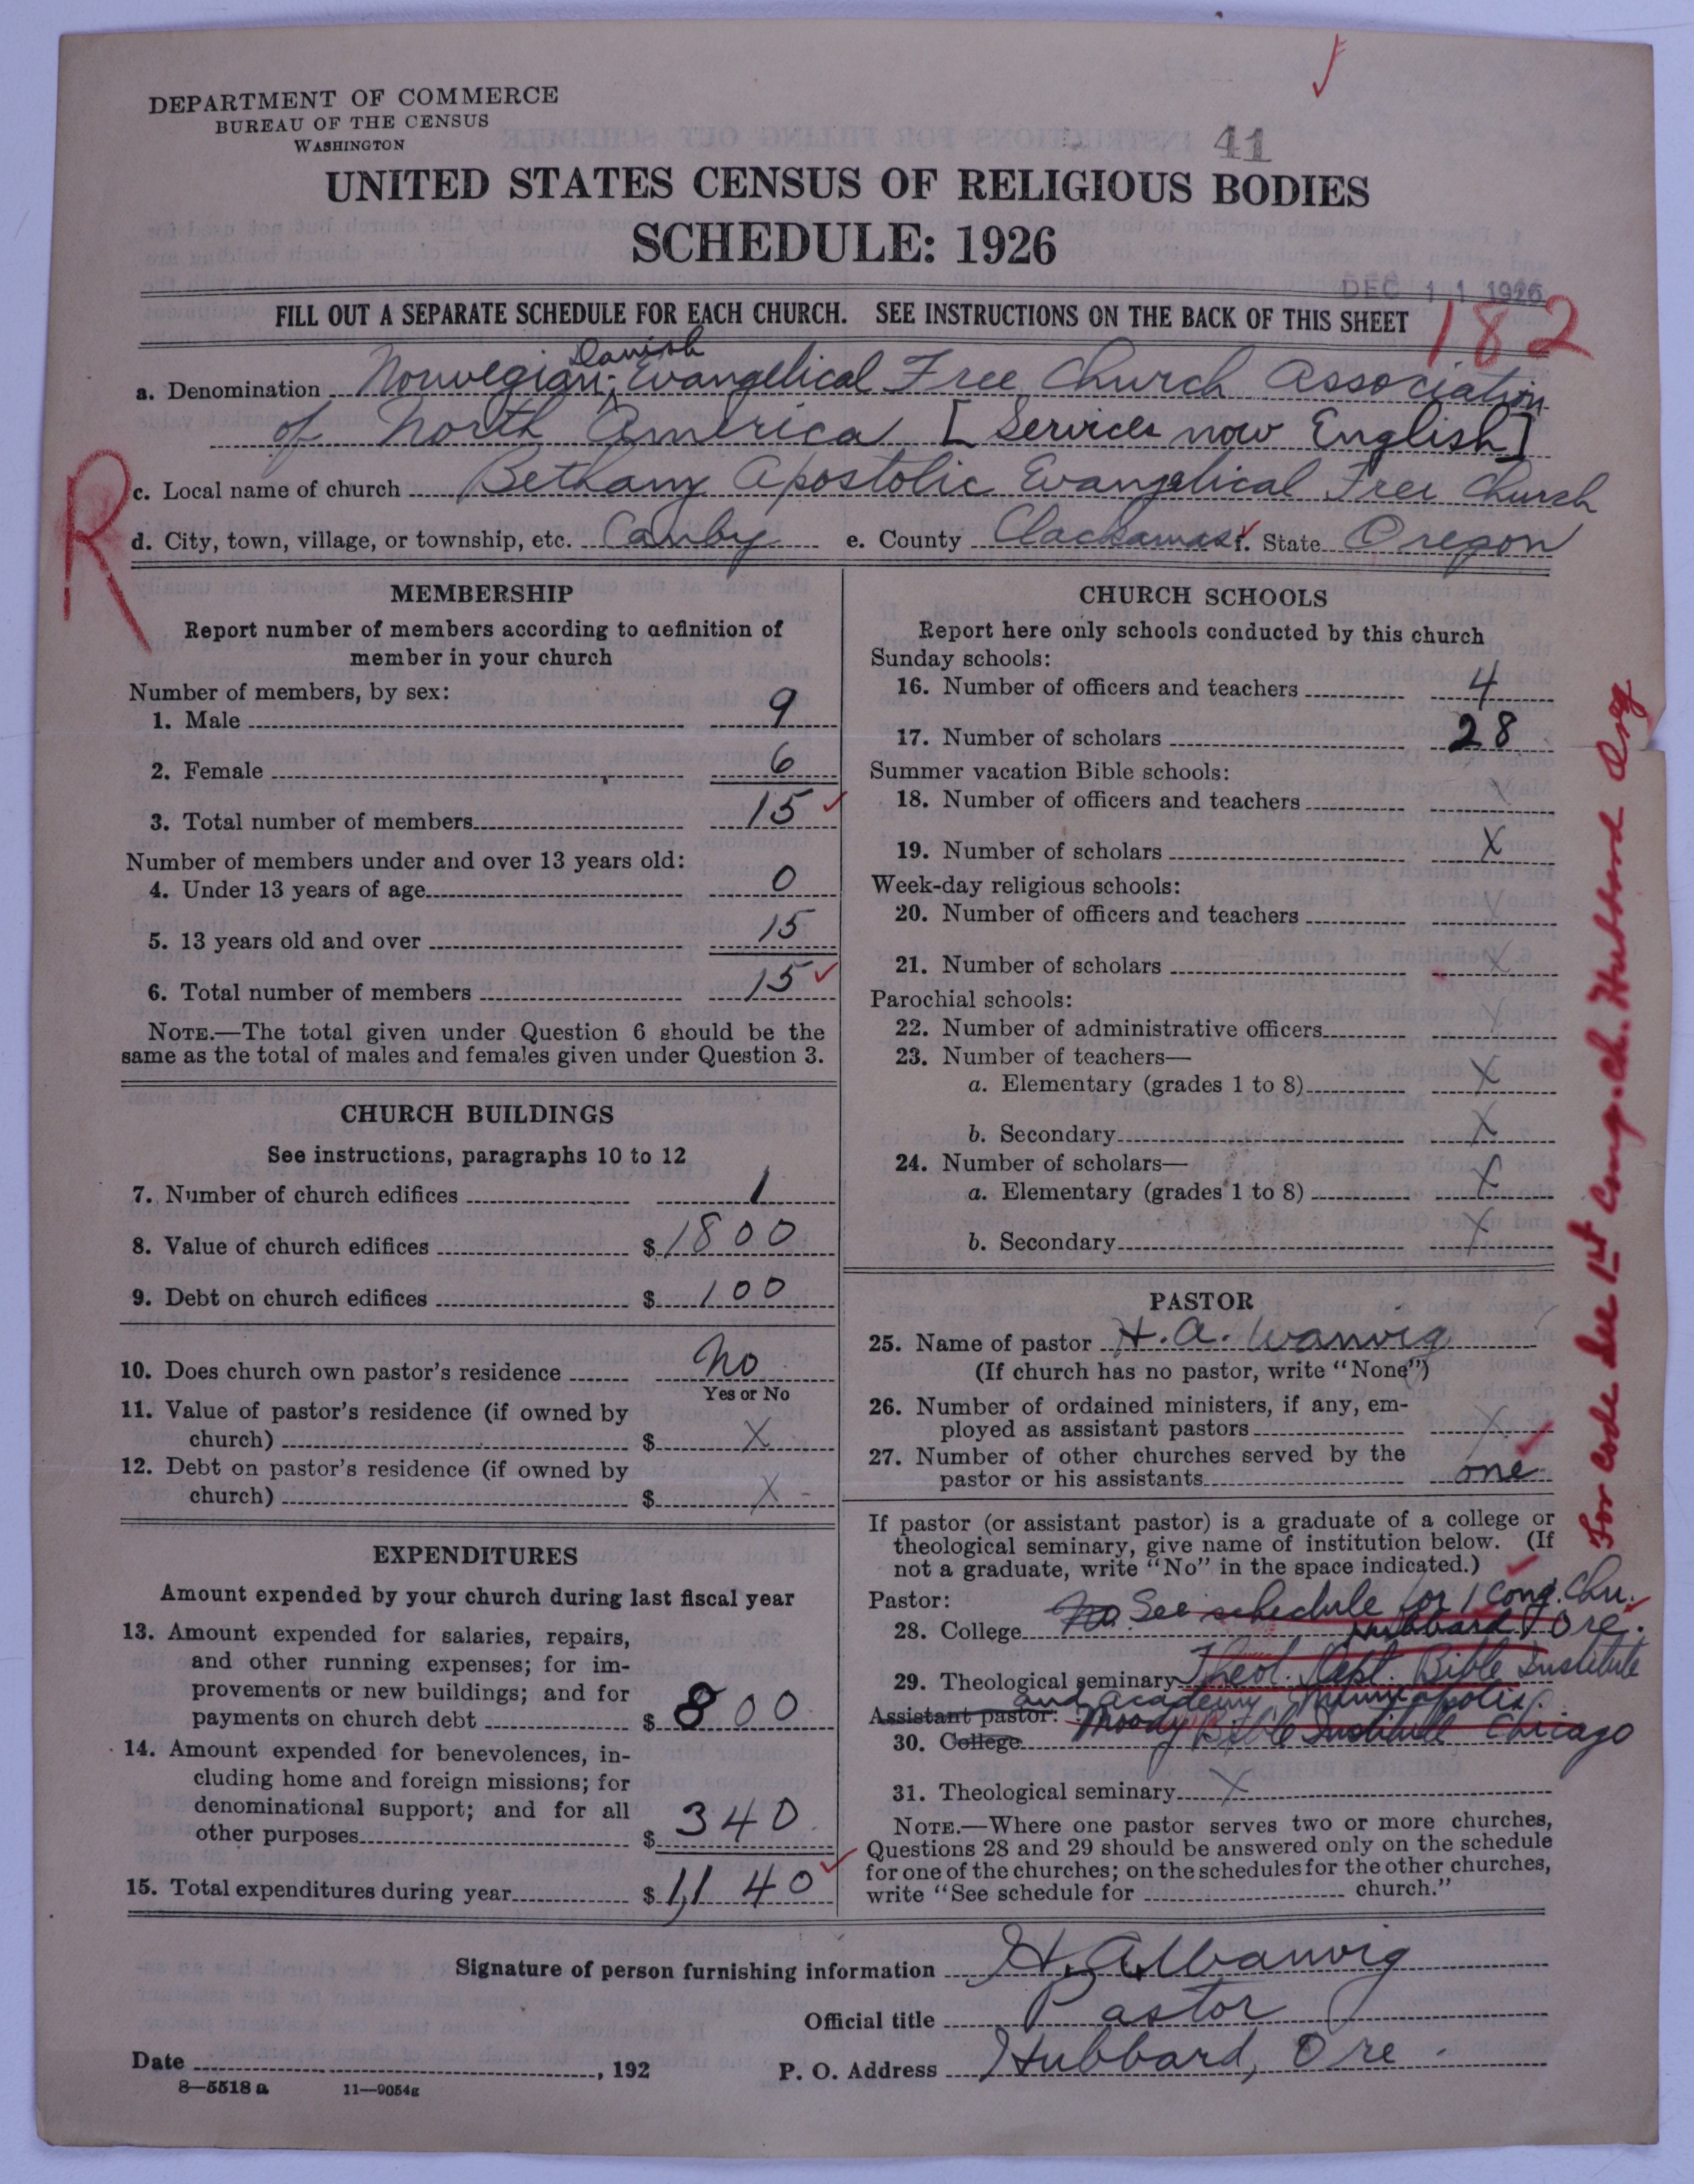 DEPARTMENT OF COMMERCE
BUREAU OF THE CENSUS
WASHINGTON
41
UNITED STATES CENSUS OF RELIGIOUS BODIES
SCHEDULE: 1926
DEC 11 1926
FILL OUT A SEPARATE SCHEDULE FOR EACH CHURCH. SEE INSTRUCTIONS ON THE BACK OF THIS SHEET
182
Danish
a. Denomination Norwegian Evangelical Free Church Association
of North America [Services now English]
R
c. Local name of church Bethany Apostolic Evangelical Free Church
d. City, town, village, or township, etc. Canby e. County Clackamas f. State Oregon
MEMBERSHIP
Report number of members according to definition of
member in your church
Number of members, by sex:
1. Male 9
2. Female 6
3. Total number of members 15
Number of members under and over 13 years old:
4. Under 13 years of age 0
5. 13 years old and over 15
6. Total number of members 15
NOTE.—The total given under Question 6 should be the
same as the total of males and females given under Question 3.
CHURCH BUILDINGS
See instructions, paragraphs 10 to 12
7. Number of church edifices 1
8. Value of church edifices $1800
9. Debt on church edifices $100
10. Does church own pastor's residence No
Yes or No
11. Value of pastor's residence (if owned by
church) $ X
12. Debt on pastor's residence (if owned by
church) $ X -
EXPENDITURES
Amount expended by your church during last fiscal year
13. Amount expended for salaries, repairs,
and other running expenses; for im-
provements or new buildings; and for
payments on church debt $800
14. Amount expended for benevolences, in-
cluding home and foreign missions; for
denominational support; and for all
other purposes $340
15. Total expenditures during year $1,140
CHURCH SCHOOLS
Report here only schools conducted by this church
Sunday schools:
16. Number of officers and teachers 4
17. Number of scholars 28
Summer vacation Bible schools:
18. Number of officers and teachers X
19. Number of scholars X
Week-day religious schools:
20. Number of officers and teachers X
21. Number of scholars X
Parochial schools:
22. Number of administrative officers X
23. Number of teachers—
a. Elementary (grades 1 to 8) X
b. Secondary X
24. Number of scholars—
a. Elementary (grades 1 to 8) X
b. Secondary X
PASTOR
25. Name of pastor H. A. Wanvig
(If church has no pastor, write "None")
26. Number of ordained ministers, if any, em-
ployed as assistant pastors X
27. Number of other churches served by the
pastor or his assistants one
If pastor (or assistant pastor) is a graduate of a college or
theological seminary, give name of institution below. (If
not a graduate, write "No" in the space indicated.)
Pastor:
28. College No See schedule for 1 Cong. Chu.
Hubbard Ore.
29. Theological seminary Theol. Dept. Bible Institute
and Academy Minneapolis.
Assistant pastor:
30. College Moody Bible Institute Chicago
31. Theological seminary X
NOTE.—Where one pastor serves two or more churches,
Questions 28 and 29 should be answered only on the schedule
for one of the churches; on the schedules for the other churches,
write "See schedule for church."
For Code See 1st Cong. Ch. Hubbard Org
Signature of person furnishing information H. A. Wanvig
Official title Pastor
Date , 192
P. O. Address Hubbard, Ore.
8—5518 a 11—9054g